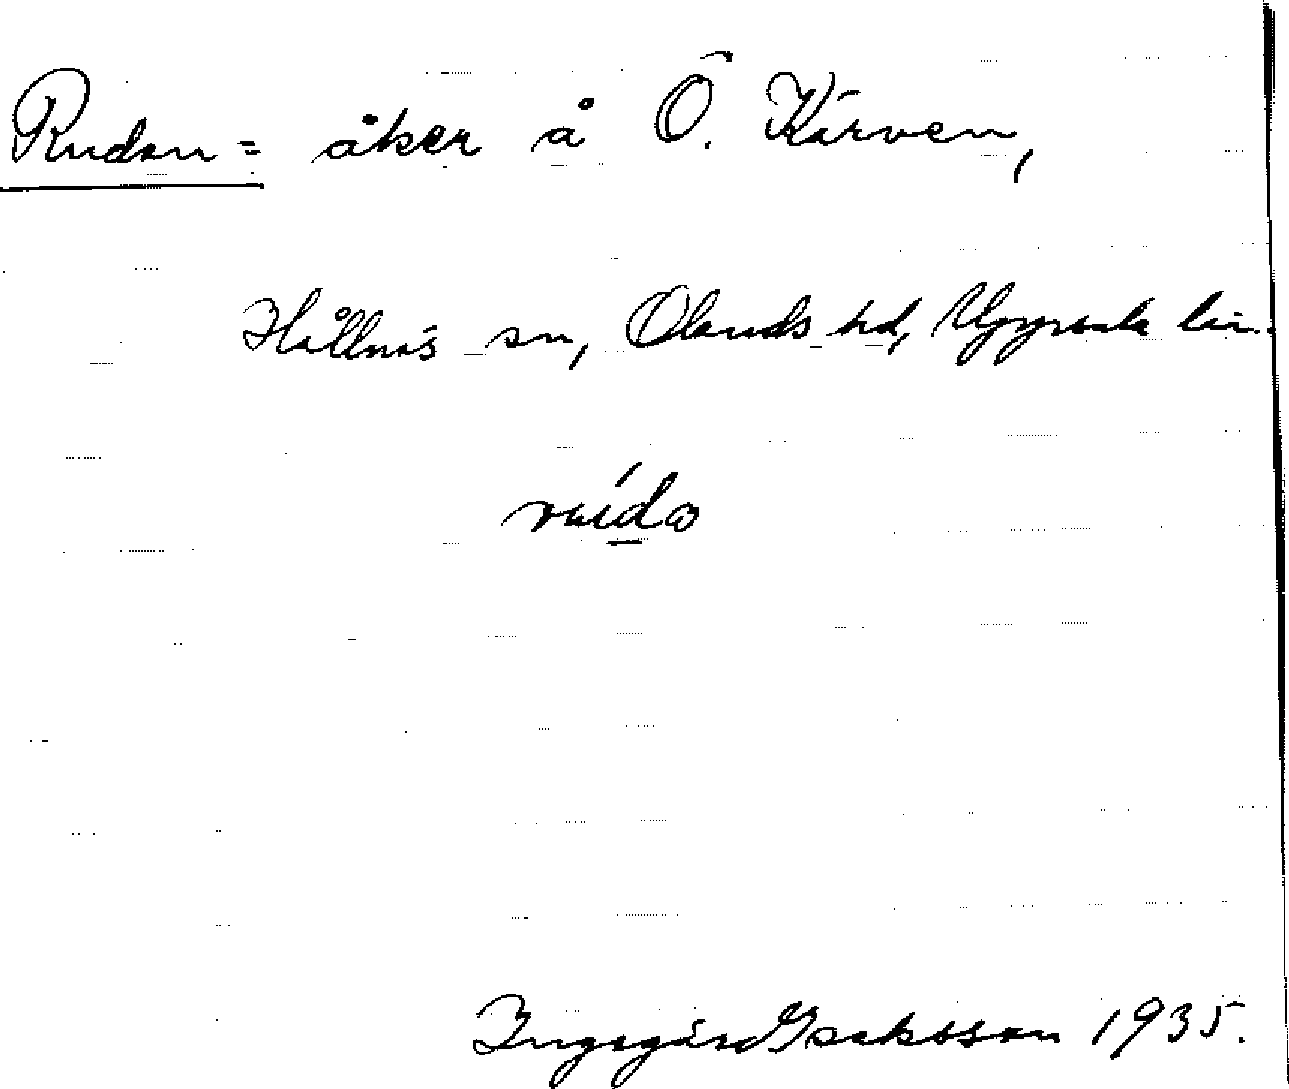 Rudan = åker å Ö. Kärven,
Hållnäs sn, Olands hd, Uppsala län.
Ingegärd Isaksson 1935.